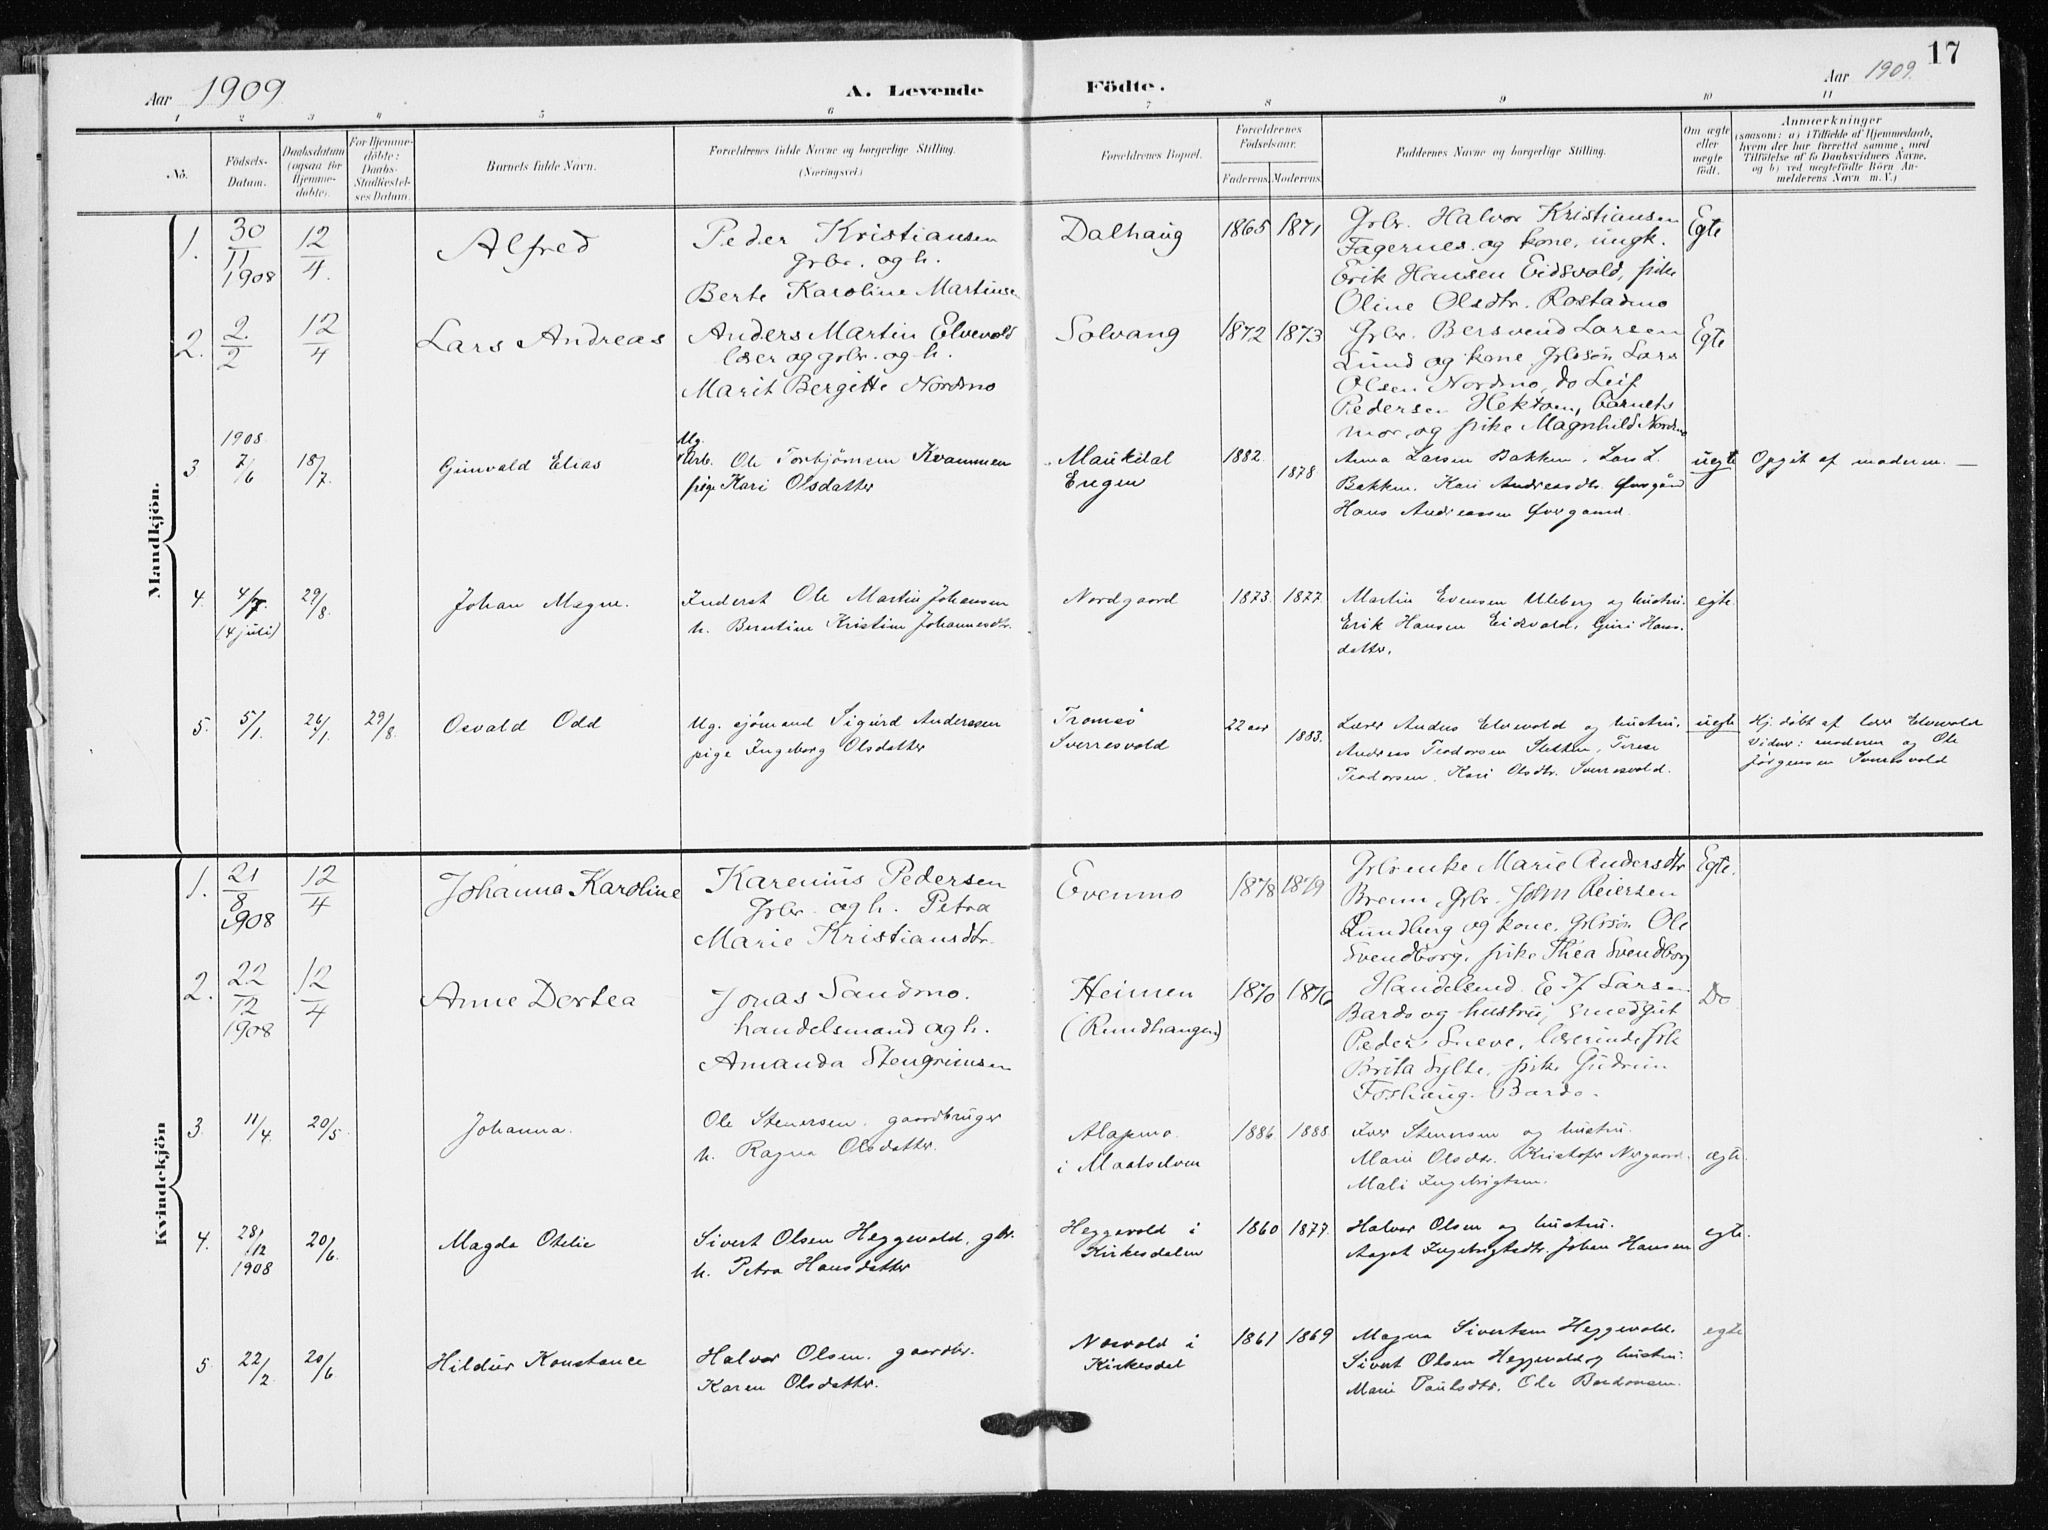 17
Aar 1909
A. Levende Födte.
Aar 1909.
1 2 3 4 5 6 7 8 9 10 11
No.
Födsels-
Datum.
Daabsdatum
(ogsaa for
Hjemme-
döbte).
For Hjemme-
döbte:
Daabs-
Stadfæstel-
ses Datum.
Barnets fulde Navn.
Forældrenes fulde Navne og borgerlige Stilling.
(Næringsvei.)
Forældrenes Bopæl.
Forældrenes
Födselsaar.
Faderens. Moderens.
Faddernes Navne og borgerlige Stilling.
Om ægte
eller
uægte
födt.
Anmærkninger
(saasom: a) i Tilfælde af Hjemmedaab,
hvem der har forrettet samme, med
Tilföielse af to Daabsvidners Navne.
og b) ved uægtefödte Börn An-
melderens Navn m. V.)
Mandkjön.
1. 30/11 1908 12/4 Alfred
Peder Kristiansen
grbr. og h.
Berte Karoline Martinsen
Dalhaug 1865 1871
Grbr. Halvor Kristiansen
Fagernes og kone, ungk.
Erik Hansen Eidsvold, pike
Oline Olsdtr. Rostadmo
Egte
2. 2/2 12/4 Lars Andreas
Anders Martin Elvevold
lærer og grbr. og h.
Marit Bergitte Nordmo
Solvang 1872 1873
Grbr. Bersvend Larsen
Lund og kone, Grbsøn Lars
Olsen Nordmo, do Leif
Pedersen Hektoen, barnets
mor, og pike Magnhild Nordmo
Egte
3 1908 7/6 18/7. Gunvald Elias
Ug.
Arb. Ole Torbjørnsen Kvammen
pige Kari Olsdatter
Maukdal
Engen
1882. 1878
Anna Larsen Bakken, Lars L.
Bakken. Kari Andreasdtr. Øvergård
Hans Andreassen Øvergaard.
uegte
Opgit af moderen. —
4. 4/7. (4 juli) 29/8. Johan Magne.
Inderst Ole Martin Johansen
h. Berntine Kristine Johannesdtr.
Nordgaard 1873. 1877
Martin Evensen Uleberg og hustru.
Erik Hansen Eidsvold, Guri Hans-
datter.
egte.
5. 5/1. 26/1. 29/8. Osvald Odd
Ug. sjømand Sigurd Andersen
pige Ingeborg Olsdatter
Tromsö
Sverresvold
22 aar 1883.
Lærer Anders Elvevold og hustru.
Andreas Teodorsen Sletten, Terese
Teodorsen, Kari Olsdtr. Sverresvold.
uegte
Hj. döbt af lærer Elvevold
Vidner: moderen og Ole
Jörgensen Sverresvold
Kvindekjön
1. 21/8 1908 12/4 Johanna Karoline
Karenius Pedersen
Grbr. og h. Petra
Marie Kristiansdtr.
Evenmo 1878 1879
Grbrenke Marie Andersdtr
Brenn, Grbr. John Reiersen
Lundberg og kone, Grbsøn Ole
Svendborg, pike Thea Svendborg
Egte.
2. 22/12 1908 12/4 Anne Dortea
Jonas Sandmo.
handelsmand og h.
Amanda Stengrimsen
Heimen
(Rundhaugen)
1870 1876
Handelsmd. E. J. Larsen
Bardo og hustru, Smedgut
Peder Sneve, lærerinde frk
Brita Sylte, pike Gudrun
Foshaug. Bardo.
Do
3. 11/4. 20/5. Johanna.
Ole Stenersen, gaardbruger
h. Ragna Olsdatter.
Alapmo
i Maalselven
1886. 1888.
Iver Stenersen og hustru.
Marie Olsdtr. Kristofer Nergaard.
Mali Ingebrigtsen.
ægte.
4. 28/12 1908 20/6. Magda Otelie
Sivert Olsen Heggevold, gbr.
h. Petra Hansdatter
Heggevold i
Kirkesdalen
1860 1877.
Halvor Olsen og hustru.
Aagot Ingebrigtsdtr. Johan Hansen
egte.
5 22/2 20/6. Hildur Konstance
Halvor Olsen, gaardbr.
Karen Olsdatter.
Nesvold i
Kirkesdal
1861 1869
Magna Sivertsen Heggevold.
Sivert Olsen Heggevold og hustru.
Marie Paulsdtr. Ole Bardonsen.
egte